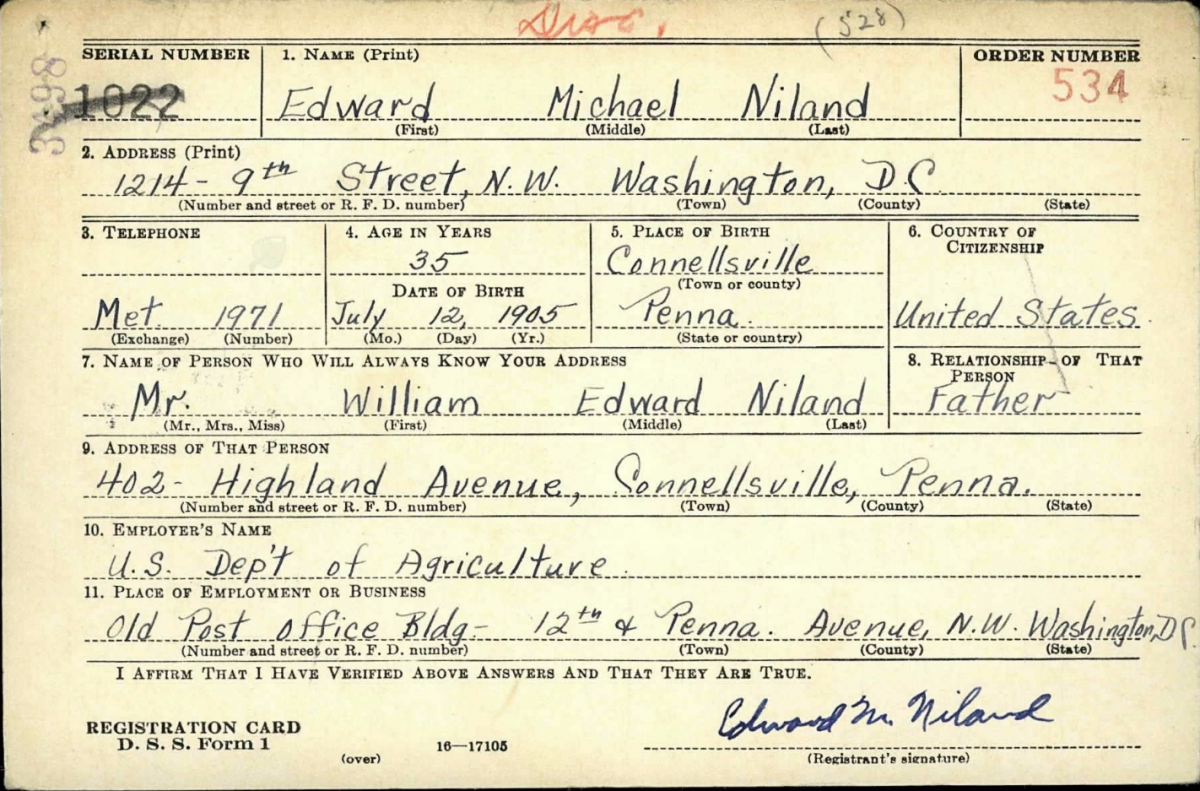 Disc.
(528)
SERIAL NUMBER
1. NAME (Print)
ORDER NUMBER
3498
1022
Edward Michael Niland
534
(First) (Middle) (Last)
2. ADDRESS (Print)
1214- 9th Street, N.W. Washington, D.C.
(Number and street or R. F. D. number) (Town) (County) (State)
3. TELEPHONE
4. AGE IN YEARS
5. PLACE OF BIRTH
6. COUNTRY OF
CITIZENSHIP
35
Connellsville
(Town or county)
DATE OF BIRTH
Met. 1971
July 12, 1905
Penna.
United States.
(Exchange) (Number)
(Mo.) (Day) (Yr.)
(State or country)
7. NAME OF PERSON WHO WILL ALWAYS KNOW YOUR ADDRESS
8. RELATIONSHIP OF THAT
PERSON
Mr. William Edward Niland
Father
(Mr., Mrs., Miss) (First) (Middle) (Last)
9. ADDRESS OF THAT PERSON
402- Highland Avenue, Connellsville, Penna.
(Number and street or R. F. D. number) (Town) (County) (State)
10. EMPLOYER'S NAME
U.S. Dep't of Agriculture.
11. PLACE OF EMPLOYMENT OR BUSINESS
Old Post Office Bldg- 12th & Penna. Avenue, N.W. Washington, DC.
(Number and street or R. F. D. number) (Town) (County) (State)
I AFFIRM THAT I HAVE VERIFIED ABOVE ANSWERS AND THAT THEY ARE TRUE.
Edward M. Niland
REGISTRATION CARD
D. S. S. Form 1
16—17105
(over)
(Registrant's signature)